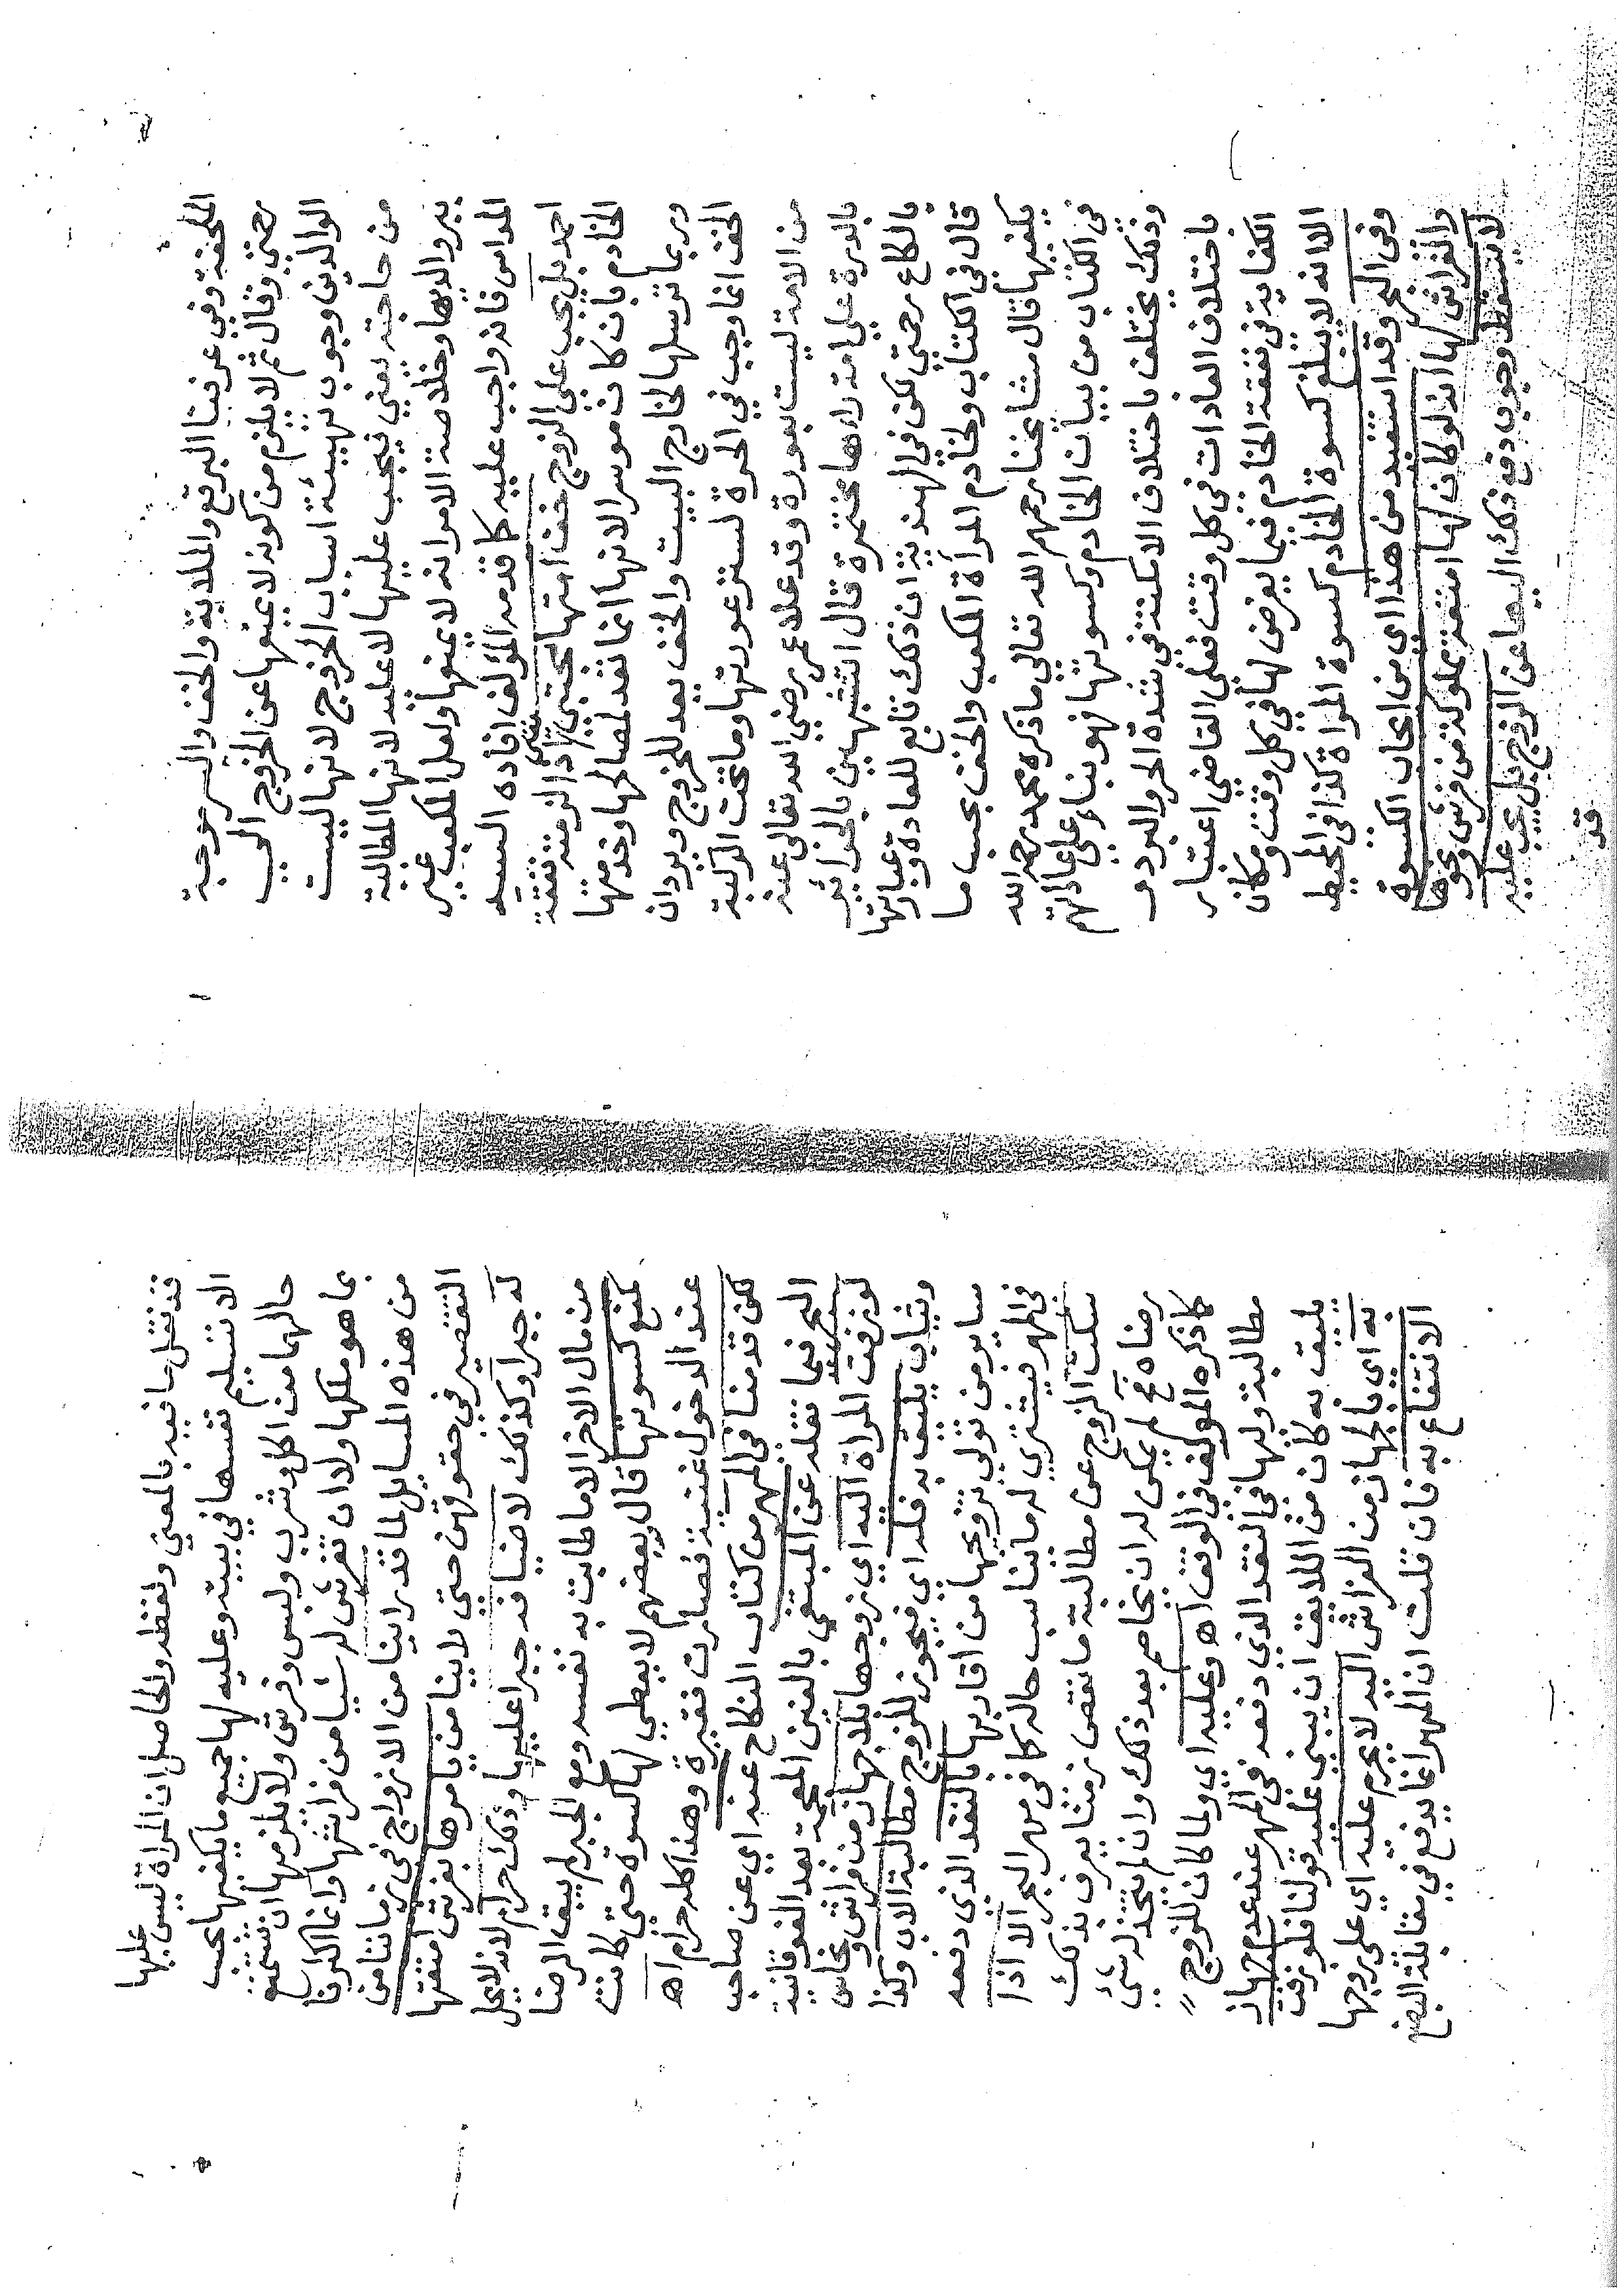 الملحفة وفي عرفنا البرقع والملاية والخف والسرموجة
رحمتي وقال ثم لا يلزم من كونه لا يمنعها عن الخروج الي
الوالدين وجوب تهيئة اسباب الخروج لانها ليست
من حاجته يعني فيجب عليها لا عليه لانها المطالبة
ببر والديها وخلاصة الامر انه لا يمنعها ولعل المكعب غير
المداس فانه واجب عليه كما قدمه المؤلف افاده السيد
احمد بل يجب علي الزوج خف امتها مجتبي اذ الزمته نفقة
الخادم بان كان موسرا لانها انما تعد لمصالحها وخدمتها
وربما ترسلها لخارج البيت والخف يعد للخروج وبودان
الخف انما وجب في الحرة لستر عورتها وما تحت الركبة
من الامة ليست بعورة وقد علا عمر رضي الله تعالى عنه
بالدرة علي امة راها مختمرة قال اتتشبهين بالحرائر
يا لكاع رحمتي لكن في الهندية ان ذلك تابع للعادة وعبارتها
قال في الكتاب ولخادم المرأة المكعب والخف بحسب ما
يكفيها قال مشايخنا رحمهم الله تعالي ما ذكره محمد رحمه الله
في الكتاب من بيان الخادم وكسوتها فهو بناء على عاداتهم
وذلك يختلف باختلاف الامكنة في شدة الحر والبرد و
باختلاف العادات في كل وقت فعلى القاضي اعتبار
الكفاية في نفقة الخادم فيما يفرض لها في كل وقت ومكان
الا انه لا يبلغ كسوة الخادم كسوة المراة كذا في المحيط
وفي البحر وقد استفيد من هذا اي من ايجاب الكسوة
والفراش لها انه لو كان لها امتعة مملوكة من فرش ونحوها
لا يسقط وجوب دفع ذلك اليها عن الزوج بل يجب عليه
قد
قد نقل ما فيه بالمعني ولفظه والحاصل ان المراة ليس عليها
الا تسليم نفسها في بيته وعليه لها جميع ما يكفيها بحسب
حالهما من اكل وشرب ولبس وفرش ولا يلزمها ان تتمتع
بما هو ملكها ولا ان تفرش له شيا من فراشها وانما اكثرنا
من هذه المسايل لما قد راينا من الازواج في زماننا من
التقصير في حقوقهن حتي لاينا من يامرها بفرش امتعتها
له جبرا وكذلك لاضيافه جبرا عليها وذلك حرام لانه لا يحل
من مال الاخر الا ما طابت به نفسه ومع الجبر لم يبق الرضا
كمنع كسوتها قال وبعضهم لا يعطي لها كسوة حتي كانت
عند الدخول غنية فصارت فقيرة وهذا كله حرام اه
لكن قدمنا في المهر من كتاب النكاح عنه اي عن صاحب
البحر فيما نقله عن المبتغي بالغين المعجمة بعد الفوقانية
لو زفت المراة اليه اي زوجها بلا جهاز من فراش ونحاس
وثياب يليق به فله اي فيجوز للزوج مطالبة الاب وكذا
ساير من تولي تزويجها من اقاربها بالنقد الذي دفعه
في المهر فيشتري له ما يناسب حاله كما في مهر البحر الا اذا
سكت الزوج عن مطالبته ما نقص زمنا يعرف بذلك
رضاه فح لم يكن له ان يخاصم بعد ذلك وان لم يتخذ له شئ
كما ذكره المولف في الوقف اه وعليه اي ولما كان للزوج
مطالبة وليها في النقد الذي دفعه في المهر عند عدم جهاز
يليق به كان من اللايق ان يبني عليه قولنا فلو زفت
به اي بالجهاز من الفراش اليه لا يحرم عليه اي علي زوجها
الانتفاع به فان قلت ان المهر انما يدفع في مقابلة البضع